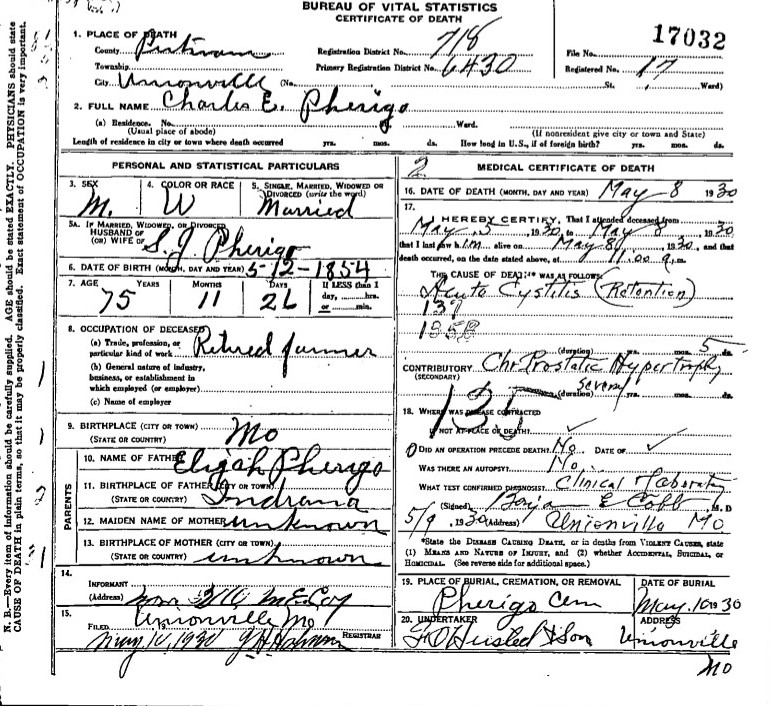 BUREAU OF VITAL STATISTICS
CERTIFICATE OF DEATH
1. PLACE OF DEATH
County Putnam Registration District No. 718 File No. 17032
Township Primary Registration District No. 6430 Registered No. 17
City Unionville (No. St., Ward)
2. FULL NAME Charles E. Pherigo
(a) Residence. No. Ward.
(Usual place of abode) (If nonresident give city or town and State)
Length of residence in city or town where death occurred yrs. mos. ds. How long in U.S., if of foreign birth? yrs. mos. ds.
PERSONAL AND STATISTICAL PARTICULARS
3. SEX 4. COLOR OR RACE 5. SINGLE, MARRIED, WIDOWED OR
DIVORCED (write the word)
M. W Married
5A. IF MARRIED, WIDOWED, OR DIVORCED
HUSBAND OF
(OR) WIFE OF S. J. Pherigo
6. DATE OF BIRTH (MONTH, DAY AND YEAR) 5-12-1854
7. AGE YEARS MONTHS DAYS If LESS than 1
day, hrs.
or min.
75 11 26
8. OCCUPATION OF DECEASED
(a) Trade, profession, or
particular kind of work Retired farmer
(b) General nature of industry,
business, or establishment in
which employed (or employer)
(c) Name of employer
9. BIRTHPLACE (CITY OR TOWN)
(STATE OR COUNTRY) Mo
PARENTS
10. NAME OF FATHER Elijah Pherigo
11. BIRTHPLACE OF FATHER (CITY OR TOWN)
(STATE OR COUNTRY) Indiana
12. MAIDEN NAME OF MOTHER unknown
13. BIRTHPLACE OF MOTHER (CITY OR TOWN)
(STATE OR COUNTRY) unknown
14.
INFORMANT
(Address) McCoy
Unionville Mo
15.
FILED May 10, 1930 REGISTRAR
2 MEDICAL CERTIFICATE OF DEATH
16. DATE OF DEATH (MONTH, DAY AND YEAR) May 8 1930
17.
I HEREBY CERTIFY, That I attended deceased from
May 5, 1930, to May 8, 1930
that I last saw him alive on May 8, 1930, and that
death occurred, on the date stated above, at 11:00 a.m.
THE CAUSE OF DEATH* WAS AS FOLLOWS:
Acute Cystitis (Retention)
(duration) yrs. mos. 5 ds.
CONTRIBUTORY Chr Prostatic Hypertrophy
(SECONDARY) (duration) several yrs. mos. ds.
135
18. WHERE WAS DISEASE CONTRACTED
IF NOT AT PLACE OF DEATH?
DID AN OPERATION PRECEDE DEATH? No DATE OF
WAS THERE AN AUTOPSY? No
WHAT TEST CONFIRMED DIAGNOSIS? Clinical Laboratory
(Signed) E Cobb, M.D
5/9, 1930 (Address) Unionville Mo
*State the DISEASE CAUSING DEATH, or in deaths from VIOLENT CAUSES, state
(1) MEANS AND NATURE OF INJURY, and (2) whether ACCIDENTAL, SUICIDAL, or
HOMICIDAL. (See reverse side for additional space.)
19. PLACE OF BURIAL, CREMATION, OR REMOVAL DATE OF BURIAL
Pherigo Cem May 10 1930
20. UNDERTAKER ADDRESS
Husted & Son Unionville
Mo
N. B.—Every item of information should be carefully supplied. AGE should be stated EXACTLY. PHYSICIANS should state
CAUSE OF DEATH in plain terms, so that it may be properly classified. Exact statement of OCCUPATION is very important.